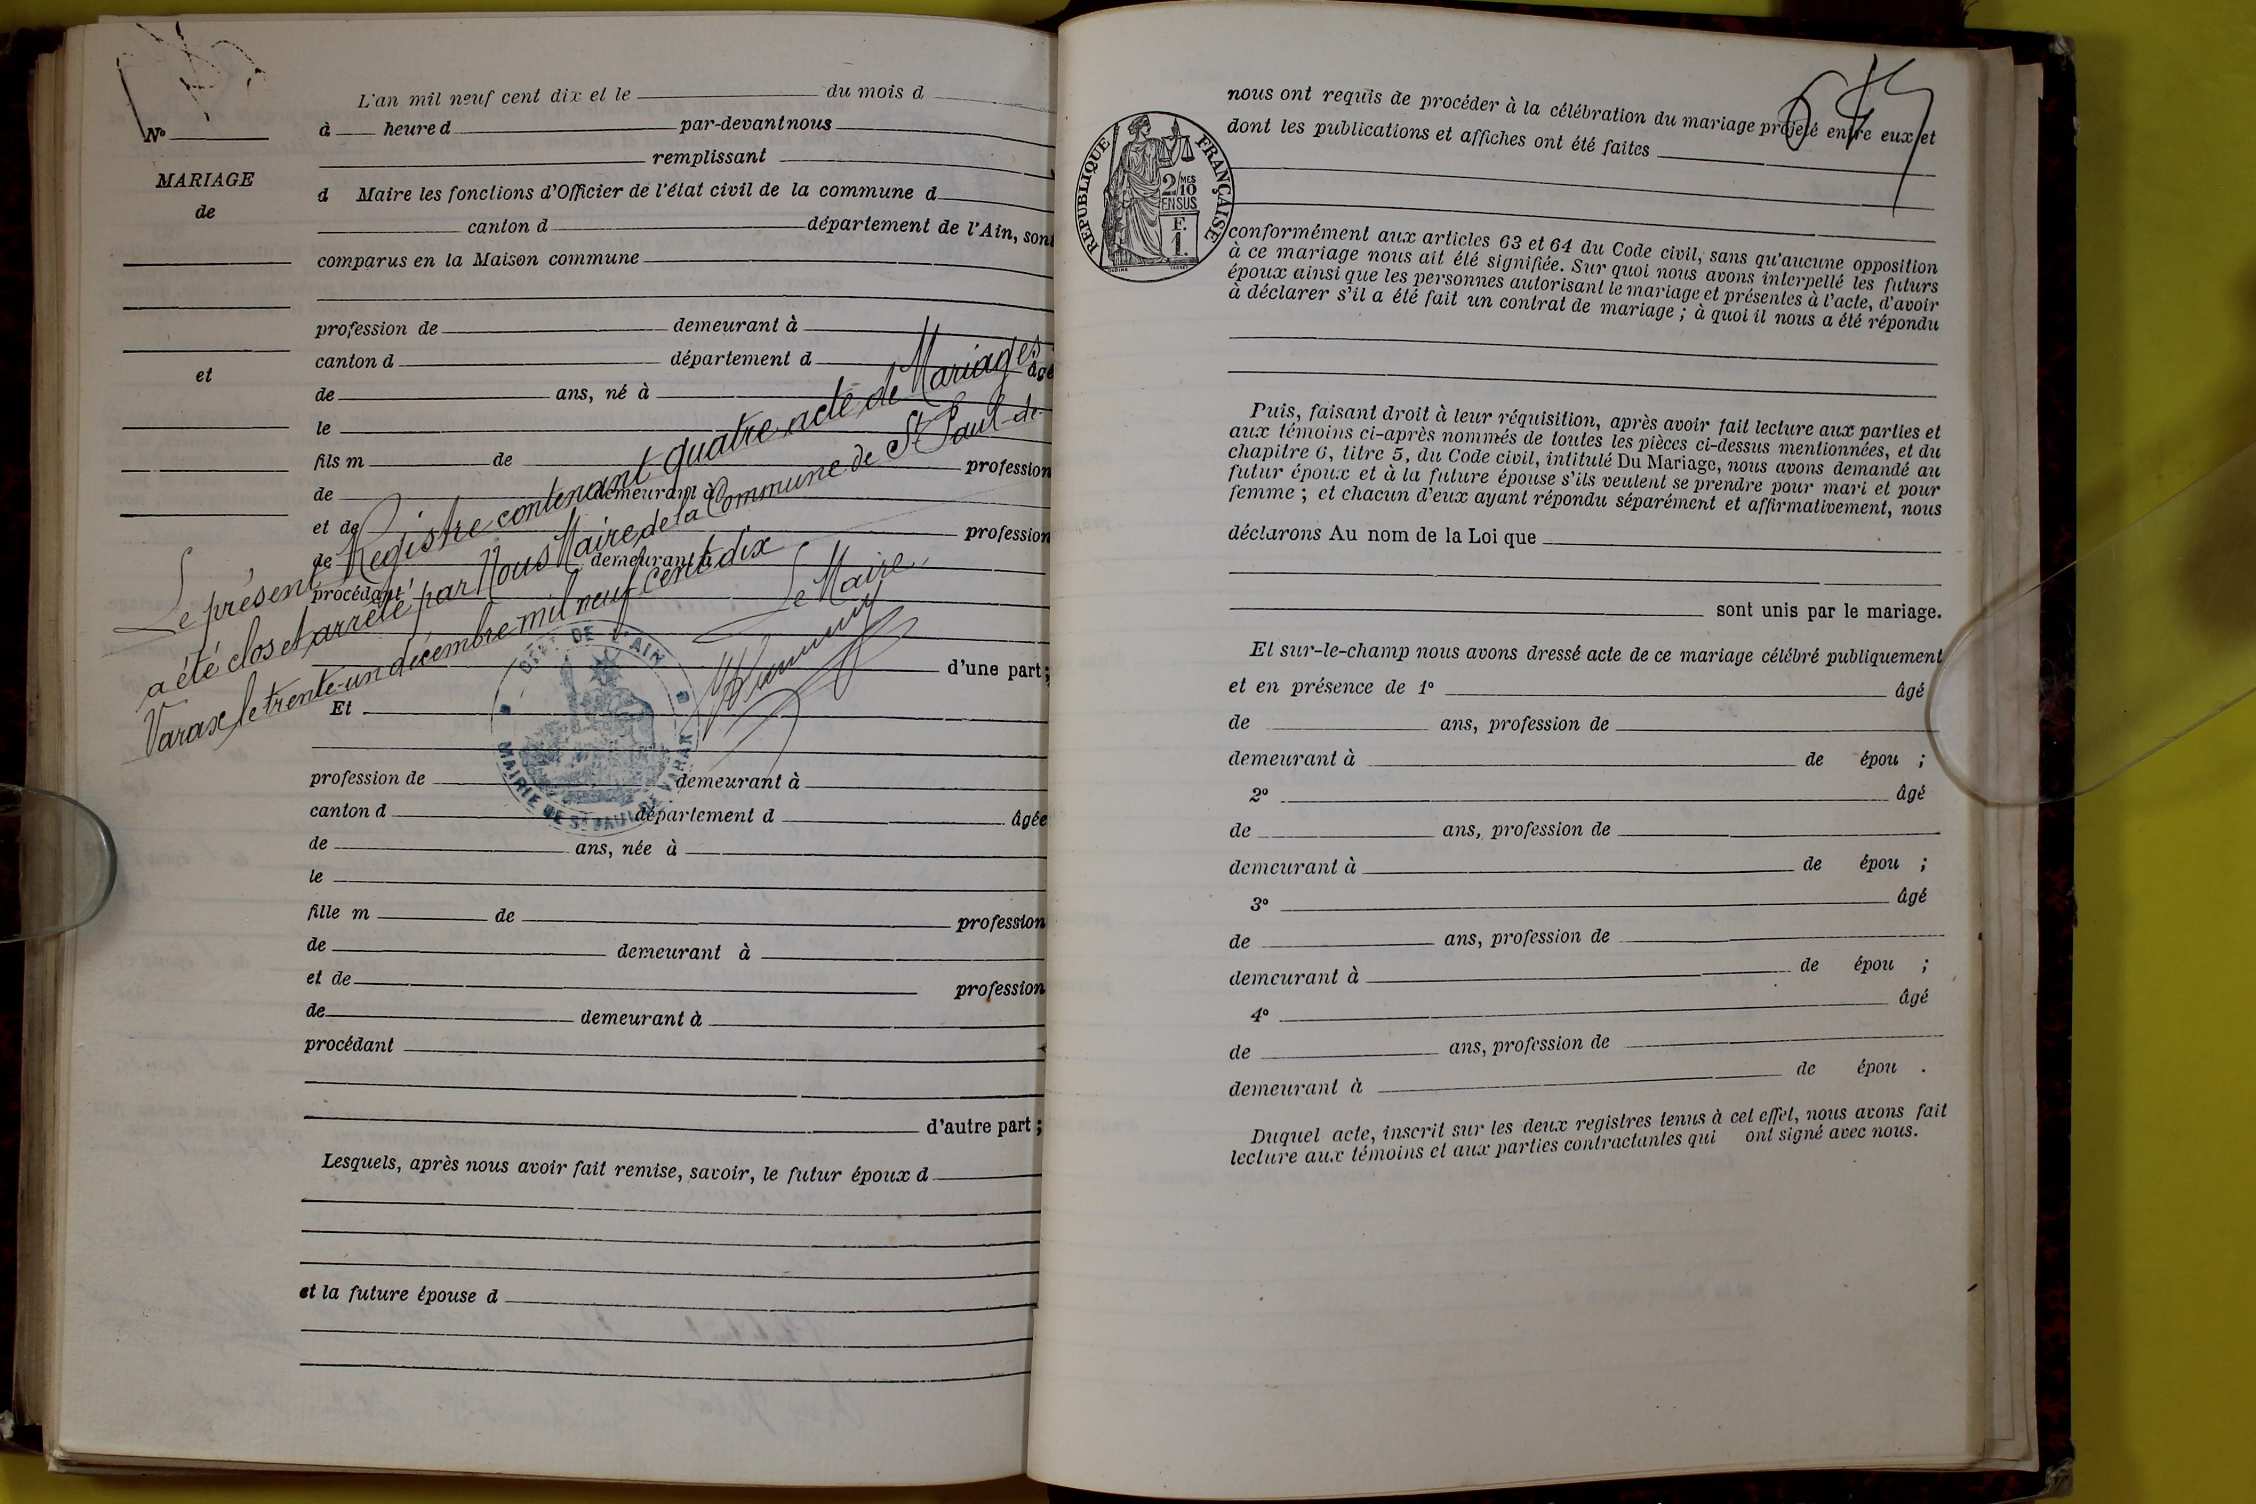 L'an mil neuf cent dix et le du mois d
No
à heure d par-devant nous
remplissant
MARIAGE
de
d Maire les fonctions d'Officier de l'état civil de la commune d
canton d département de l'Ain, sont
comparus en la Maison commune
profession de demeurant à
et
canton d département d âgé
de ans, né à
le
fils m de profession
de demeurant à
et de profession
de demeurant à
procédant
d'une part ;
Le présent Registre contenant quatre acte de Mariages
a été clos et arrêté par Nous Maire de la Commune de St Paul-de-
Varax le trente-un décembre mil neuf cent dix
Le Maire
DÉPT DE L'AIN
MAIRIE DE ST PAUL DE VARAX
Et
profession de demeurant à
canton d département d âgée
de ans, née à
le
fille m de profession
de demeurant à
et de profession
de demeurant à
procédant
d'autre part ;
Lesquels, après nous avoir fait remise, savoir, le futur époux d
et la future épouse d
nous ont requis de procéder à la célébration du mariage projeté entre eux et
dont les publications et affiches ont été faites
RÉPUBLIQUE FRANÇAISE
2/10 MES
EN SUS
F.
1.
conformément aux articles 63 et 64 du Code civil, sans qu'aucune opposition
à ce mariage nous ait été signifiée. Sur quoi nous avons interpellé les futurs
époux ainsi que les personnes autorisant le mariage et présentes à l'acte, d'avoir
à déclarer s'il a été fait un contrat de mariage ; à quoi il nous a été répondu
Puis, faisant droit à leur réquisition, après avoir fait lecture aux parties et
aux témoins ci-après nommés de toutes les pièces ci-dessus mentionnées, et du
chapitre 6, titre 5, du Code civil, intitulé Du Mariage, nous avons demandé au
futur époux et à la future épouse s'ils veulent se prendre pour mari et pour
femme ; et chacun d'eux ayant répondu séparément et affirmativement, nous
déclarons Au nom de la Loi que
sont unis par le mariage.
Et sur-le-champ nous avons dressé acte de ce mariage célébré publiquement
et en présence de 1o âgé
de ans, profession de
demeurant à de épou ;
2o âgé
de ans, profession de
demeurant à de épou ;
3o âgé
de ans, profession de
demeurant à de épou ;
4o âgé
de ans, profession de
demeurant à de épou .
Duquel acte, inscrit sur les deux registres tenus à cet effet, nous avons fait
lecture aux témoins et aux parties contractantes qui ont signé avec nous.